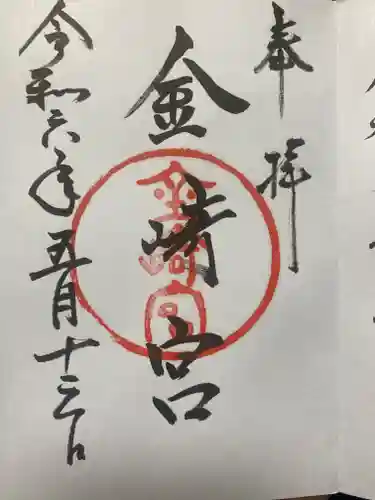 奉拝
金崎宮
金崎宮
令和六年五月十三日